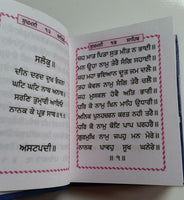 ਸੁਖਮਨੀ ੧੨ ਸਾਹਿਬ
ਸਲੋਕੁ ॥
ਦੀਨ ਦਰਦ ਦੁਖ ਭੰਜਨਾ
ਘਟਿ ਘਟਿ ਨਾਥ ਅਨਾਥ ॥
ਸਰਣਿ ਤੁਮ੍ਹਾਰੀ ਆਇਓ
ਨਾਨਕ ਕੇ ਪ੍ਰਭ ਸਾਥ ॥੧॥
ਅਸਟਪਦੀ ॥
ਸੁਖਮਨੀ ੧੩ ਸਾਹਿਬ
ਜਹ ਮਾਤ ਪਿਤਾ ਸੁਤ ਮੀਤ ਨ ਭਾਈ ॥
ਮਨ ਊਹਾ ਨਾਮੁ ਤੇਰੈ ਸੰਗਿ ਸਹਾਈ ॥
ਜਹ ਮਹਾ ਭਇਆਨ ਦੂਤ ਜਮ ਦਲੈ ॥
ਤਹ ਕੇਵਲ ਨਾਮੁ ਸੰਗਿ ਤੇਰੈ ਚਲੈ ॥
ਜਹ ਮੁਸਕਲ ਹੋਵੈ ਅਤਿ ਭਾਰੀ ॥
ਹਰਿ ਕੋ ਨਾਮੁ ਖਿਨ ਮਾਹਿ ਉਧਾਰੀ ॥
ਅਨਿਕ ਪੁਨਹਚਰਨ ਕਰਤ ਨਹੀ ਤਰੈ ॥
ਹਰਿ ਕੋ ਨਾਮੁ ਕੋਟਿ ਪਾਪ ਪਰਹਰੈ ॥
ਗੁਰਮੁਖਿ ਨਾਮੁ ਜਪਹੁ ਮਨ ਮੇਰੇ ॥
ਨਾਨਕ ਪਾਵਹੁ ਸੂਖ ਘਨੇਰੇ ॥
॥੧॥